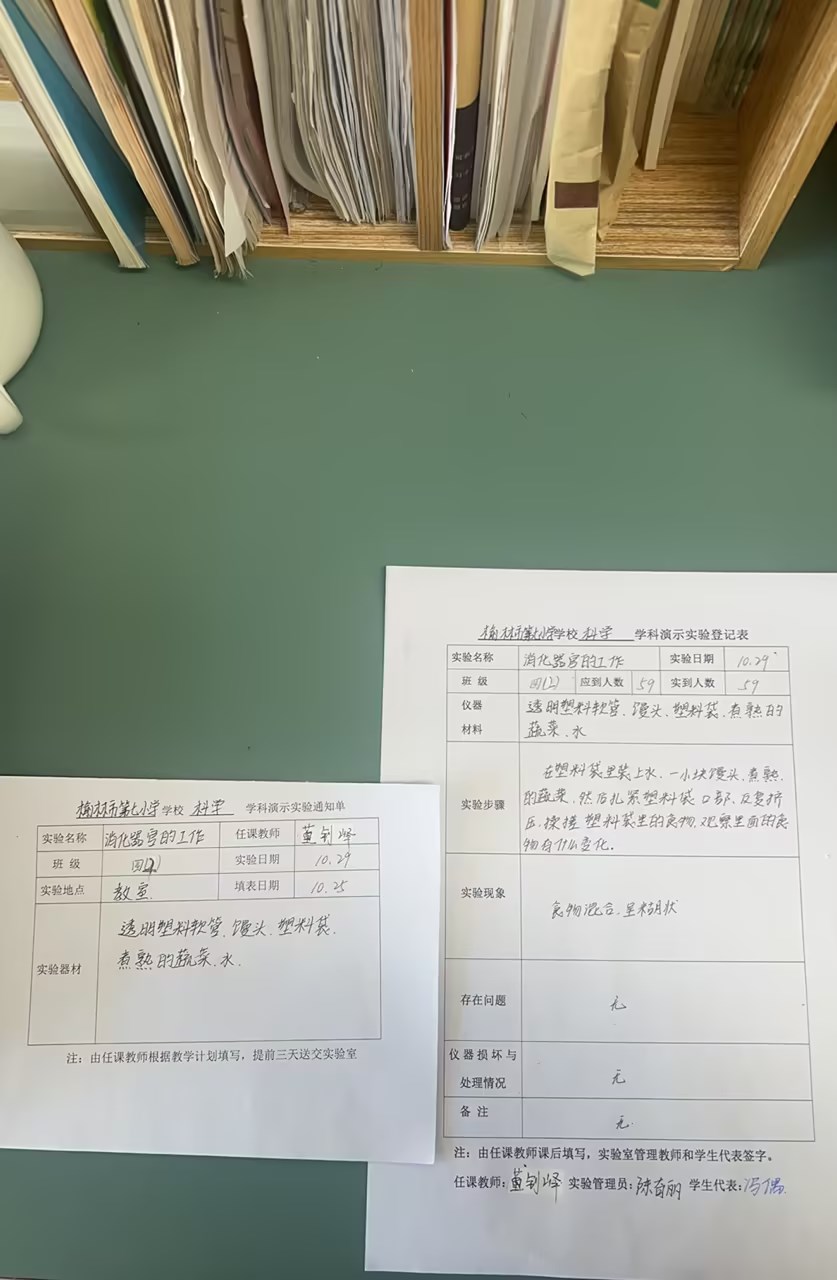 榆林市第七小学学校 科学 学科演示实验通知单
实验名称 消化器官的工作 任课教师 董钊峰
班 级 四(2) 实验日期 10.29
实验地点 教室 填表日期 10.25
实验器材
透明塑料软管、馒头、塑料袋、
煮熟的蔬菜、水.
注：由任课教师根据教学计划填写，提前三天送交实验室
榆林市第七小学学校 科学 学科演示实验登记表
实验名称 消化器官的工作 实验日期 10.29
班 级 四(2) 应到人数 59 实到人数 59
仪器
材料
透明塑料软管、馒头、塑料袋、煮熟的
蔬菜、水
实验步骤
在塑料袋里装上水、一小块馒头、煮熟
的蔬菜,然后扎紧塑料袋口部,反复挤
压、揉搓塑料袋里的食物,观察里面的食
物有什么变化.
实验现象
食物混合,呈粘糊状
存在问题 无
仪器损坏与
处理情况
无
备 注 无.
注：由任课教师课后填写，实验室管理教师和学生代表签字。
任课教师: 董钊峰 实验管理员: 陈育丽 学生代表: